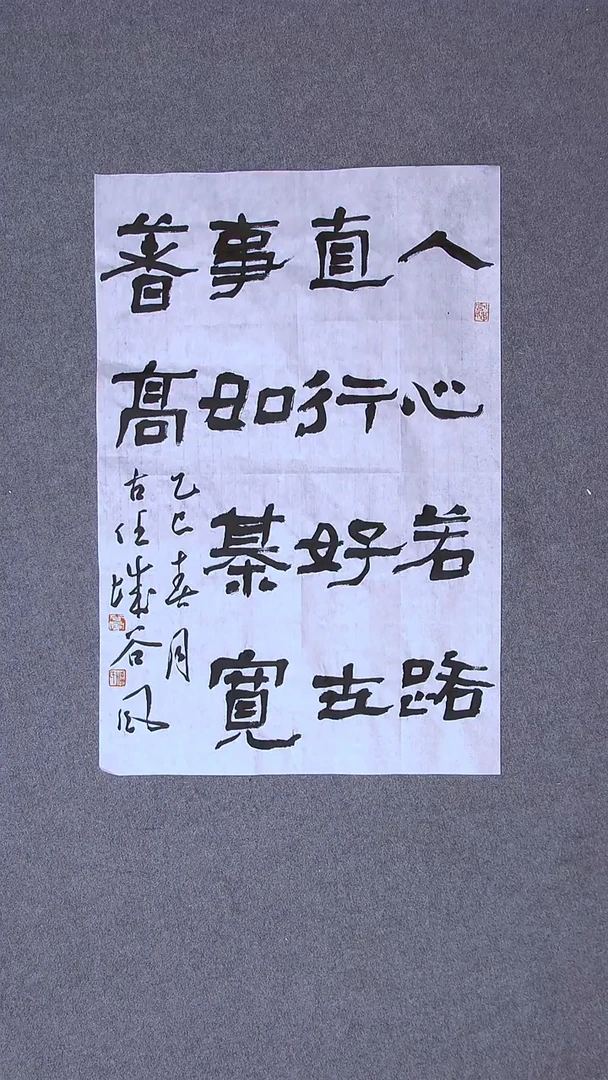 人心若路
直行好世
事如棊寬
著高
乙巳春月
古任城谷风